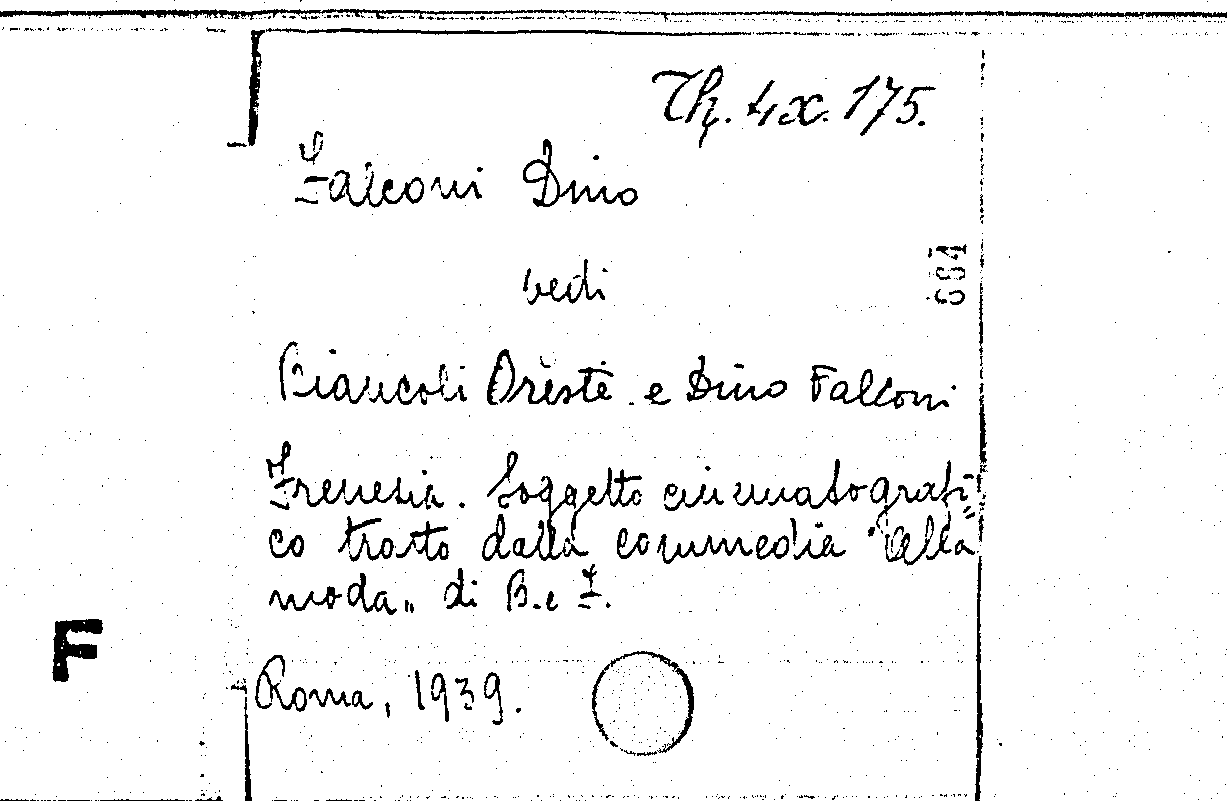 Th. 4x. 175.
Falconi Dino
664
vedi
Biancoli Oreste e Dino Falconi
Frenesia. Soggetto cinematografi=
co tratto dalla commedia "Alla
moda„ di B. e F.
F
Roma, 1939.